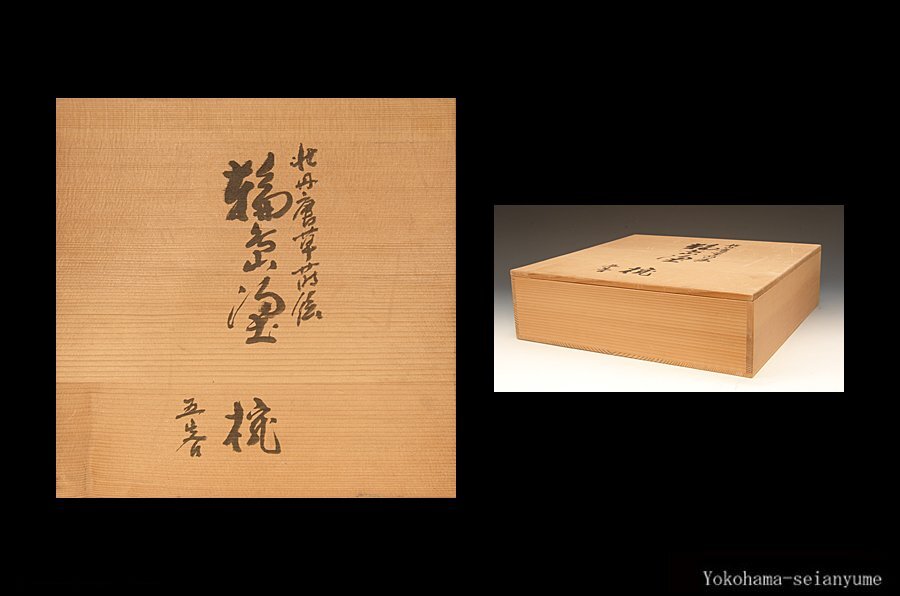 牡丹唐草蒔絵
輪島塗 椀
五客
Yokohama-seianyume